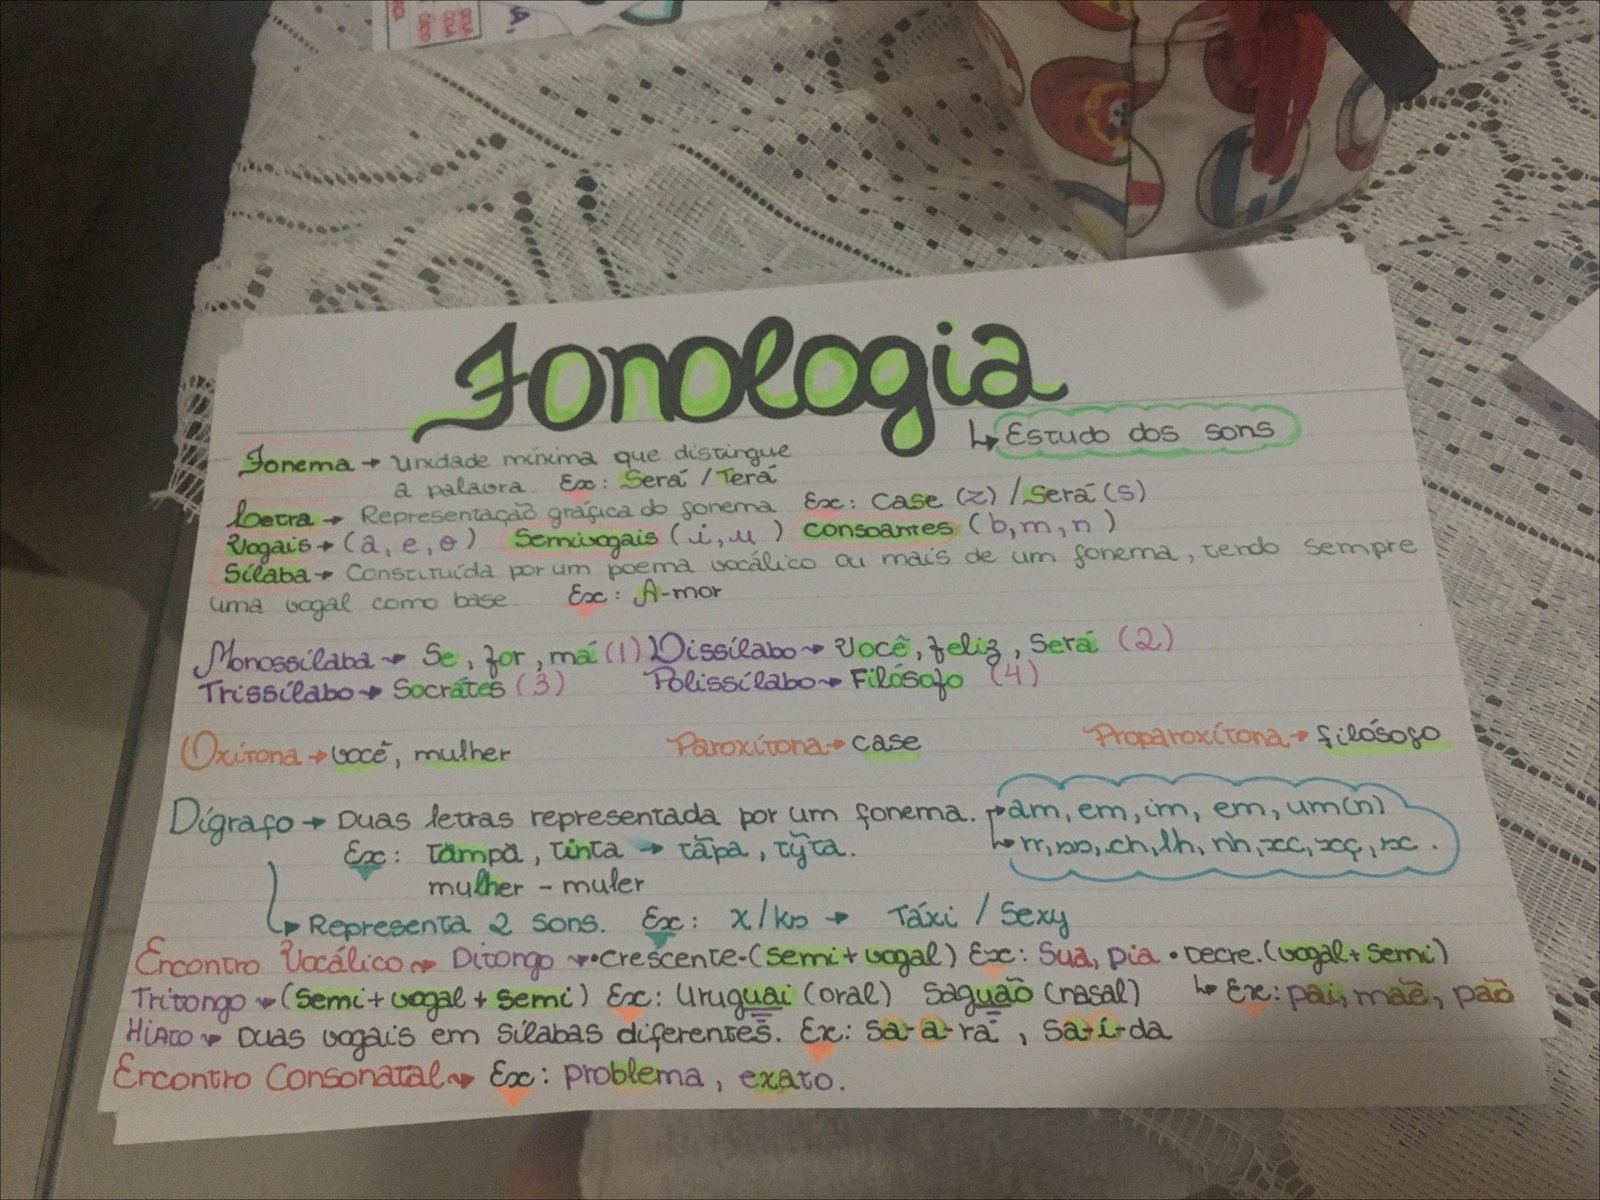 Fonologia
↳ Estudo dos sons
Fonema → unidade mínima que distingue
a palavra. Ex: Será / Terá
Letra → Representação gráfica do fonema Ex: Case (z) / Será (s)
Vogais → (a, e, o) Semivogais (i, u) consoantes (b, m, n)
Sílaba → Constituída por um poema vocálico ou mais de um fonema, tendo sempre
uma vogal como base. Ex: A-mor
Monossílaba → Se, for, má (1) Dissílabo → Você, feliz, Será (2)
Trissílabo → Socrátes (3) Polissílabo → Filósofo (4)
Oxítona → você, mulher Paroxítona → case Proparoxítona → filósofo
Dígrafo → Duas letras representada por um fonema. → am, em, im, em, um(n)
↳ rr, ss, ch, lh, nh, xc, xç, sc.
Ex: tampa, tinta → tãpa, tỹta.
mulher - muler
↳ Representa 2 sons. Ex: x/ks → Táxi / Sexy
Encontro Vocálico → Ditongo → • crescente - (semi + vogal) Ex: Sua, pia • Decre. (vogal + semi)
Tritongo → (semi + vogal + semi) Ex: Uruguai (oral) Saguão (nasal) ↳ Ex: pai, mãe, pão
Hiato → Duas vogais em sílabas diferentes. Ex: Sa-a-rá, Sa-í-da
Encontro Consonatal → Ex: problema, exato.